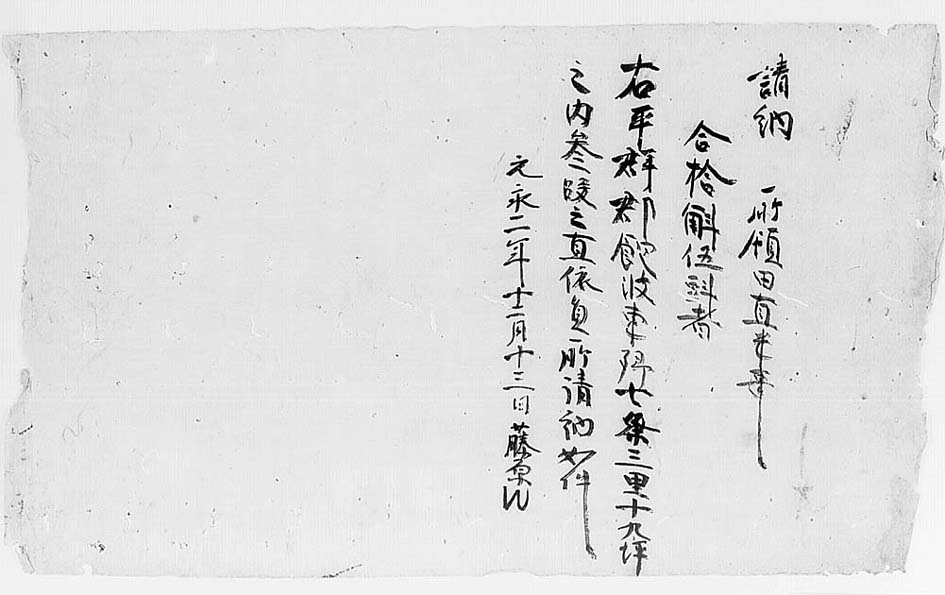 請納　所領田直米事
合拾斛伍斗者
右平群郡飽波東郷七条三里十九坪
之内参段之直依負所請納如件
元永二年十二月十三日藤原